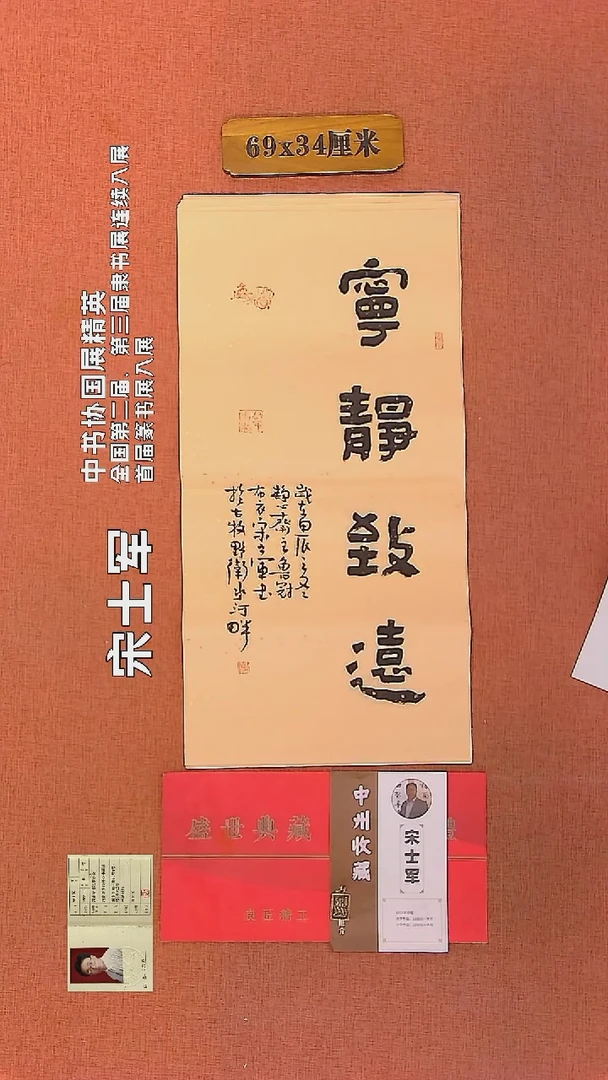 69x34厘米
中书协国展精英
全国第二届.第三届隶书展连续入展
首届篆书展入展
宋士军
寧靜致遠
歲在甲辰之冬
靜心齋主魯尉
布衣宋士軍書
於古牧野衛水河畔
盛世典藏
良匠精工
中州收藏
宋士军